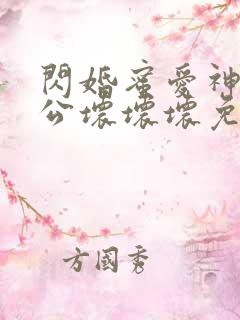 閃婚蜜愛神
公壞壞壞免
方國秀